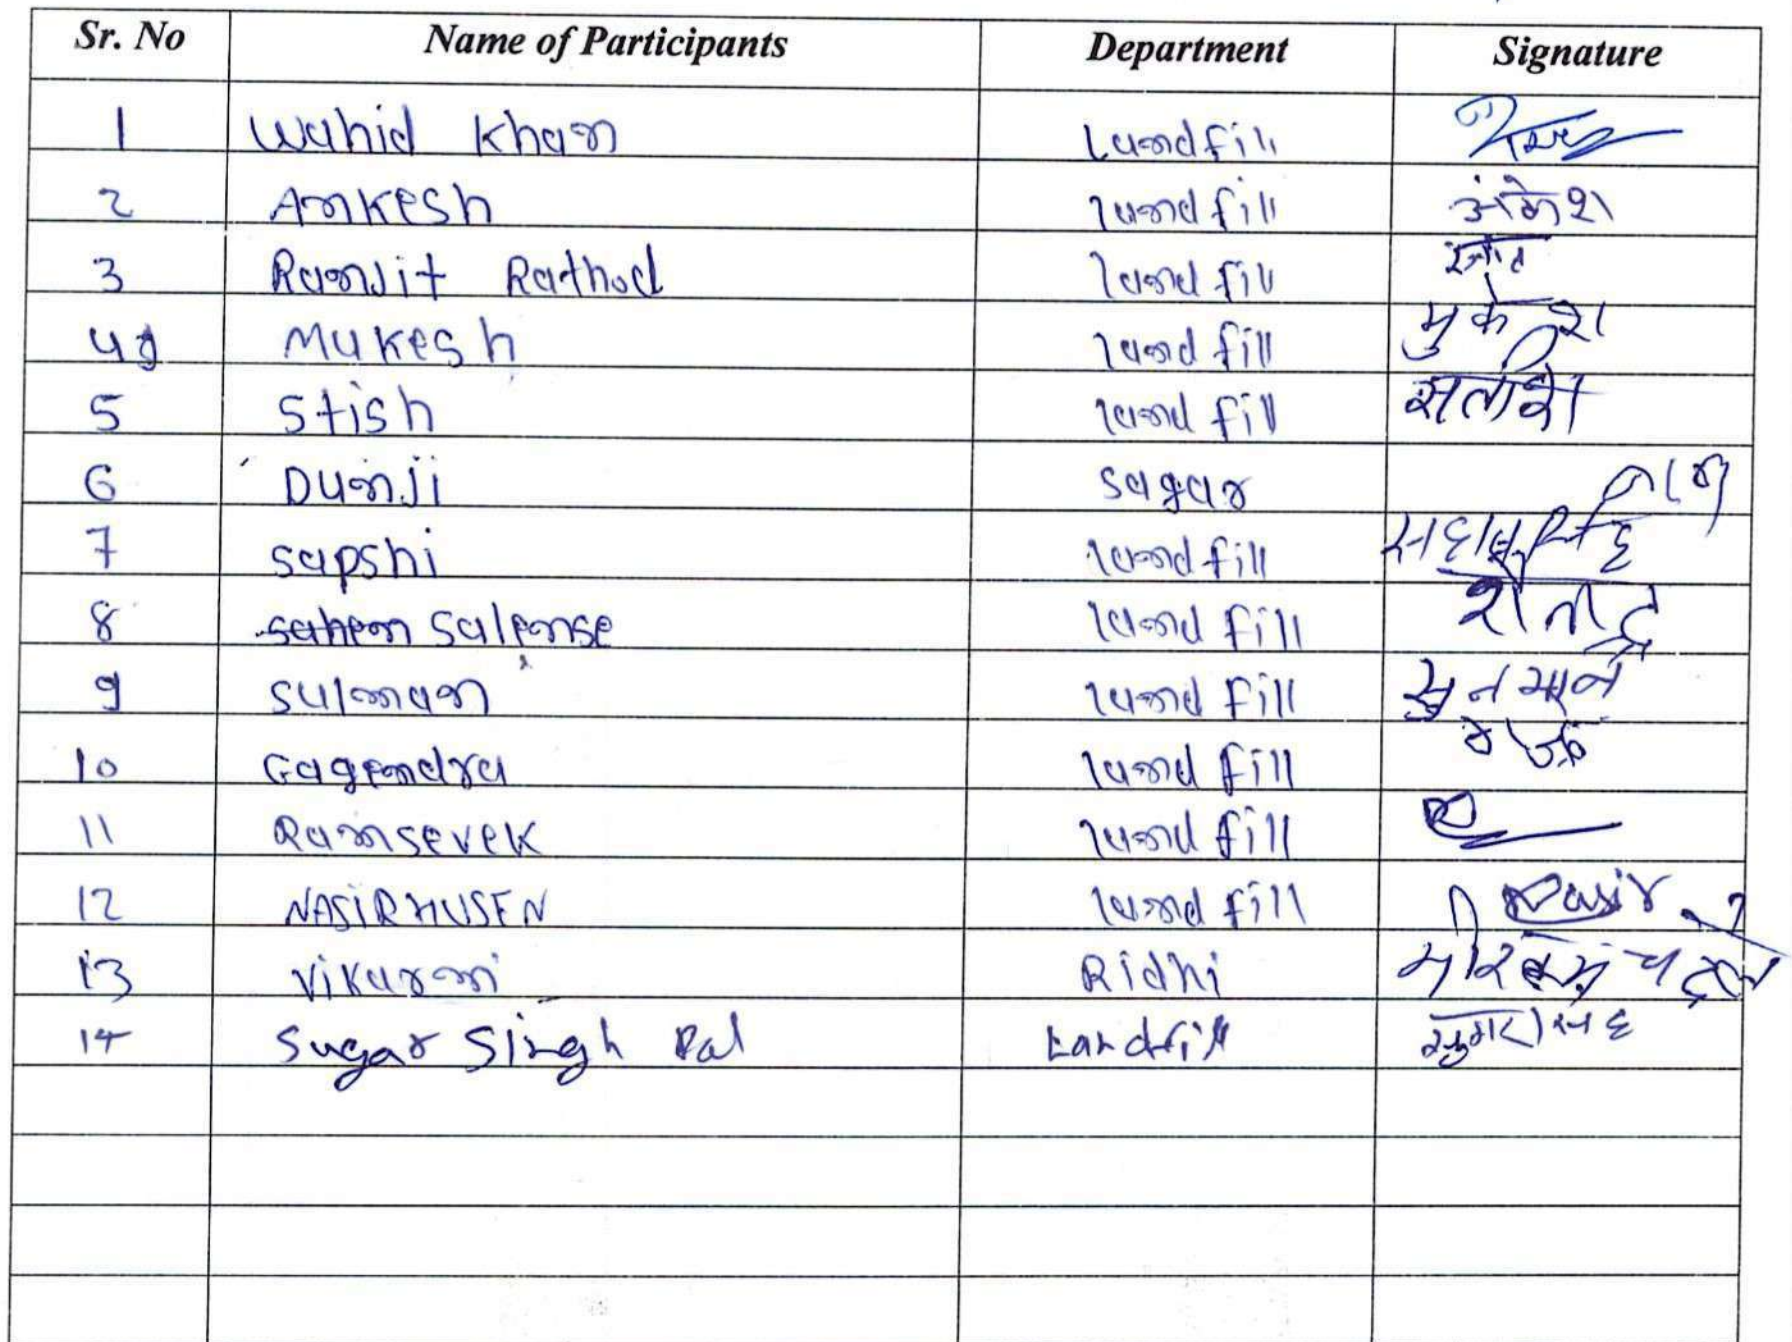 Sr. No Name of Participants Department Signature
1 Wahid Khan Landfill
2 Ankesh landfill अंकेश
3 Ranjit Rathod landfill
4 Mukesh landfill मुकेश
5 Stish landfill सतीश
6 Dunji Sagar
7 sapshi landfill
8 salense landfill
9 Sulman landfill
10 Gagendra landfill
11 Ramsevek landfill
12 NASIRHUSEN landfill Nasir
13 Vikarmi Ridhi
14 Sugar Singh Pal Landfill